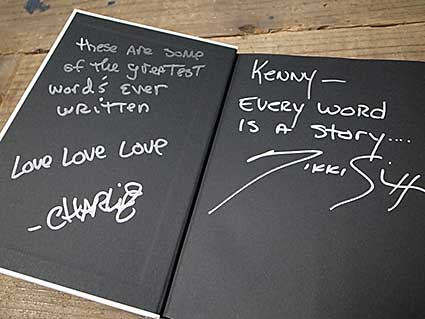 these are some
of the greatest
word's ever
written
Love Love Love
- CHARLIE
KENNY —
EVERY WORD
IS A STORY....
Nikki Sixx